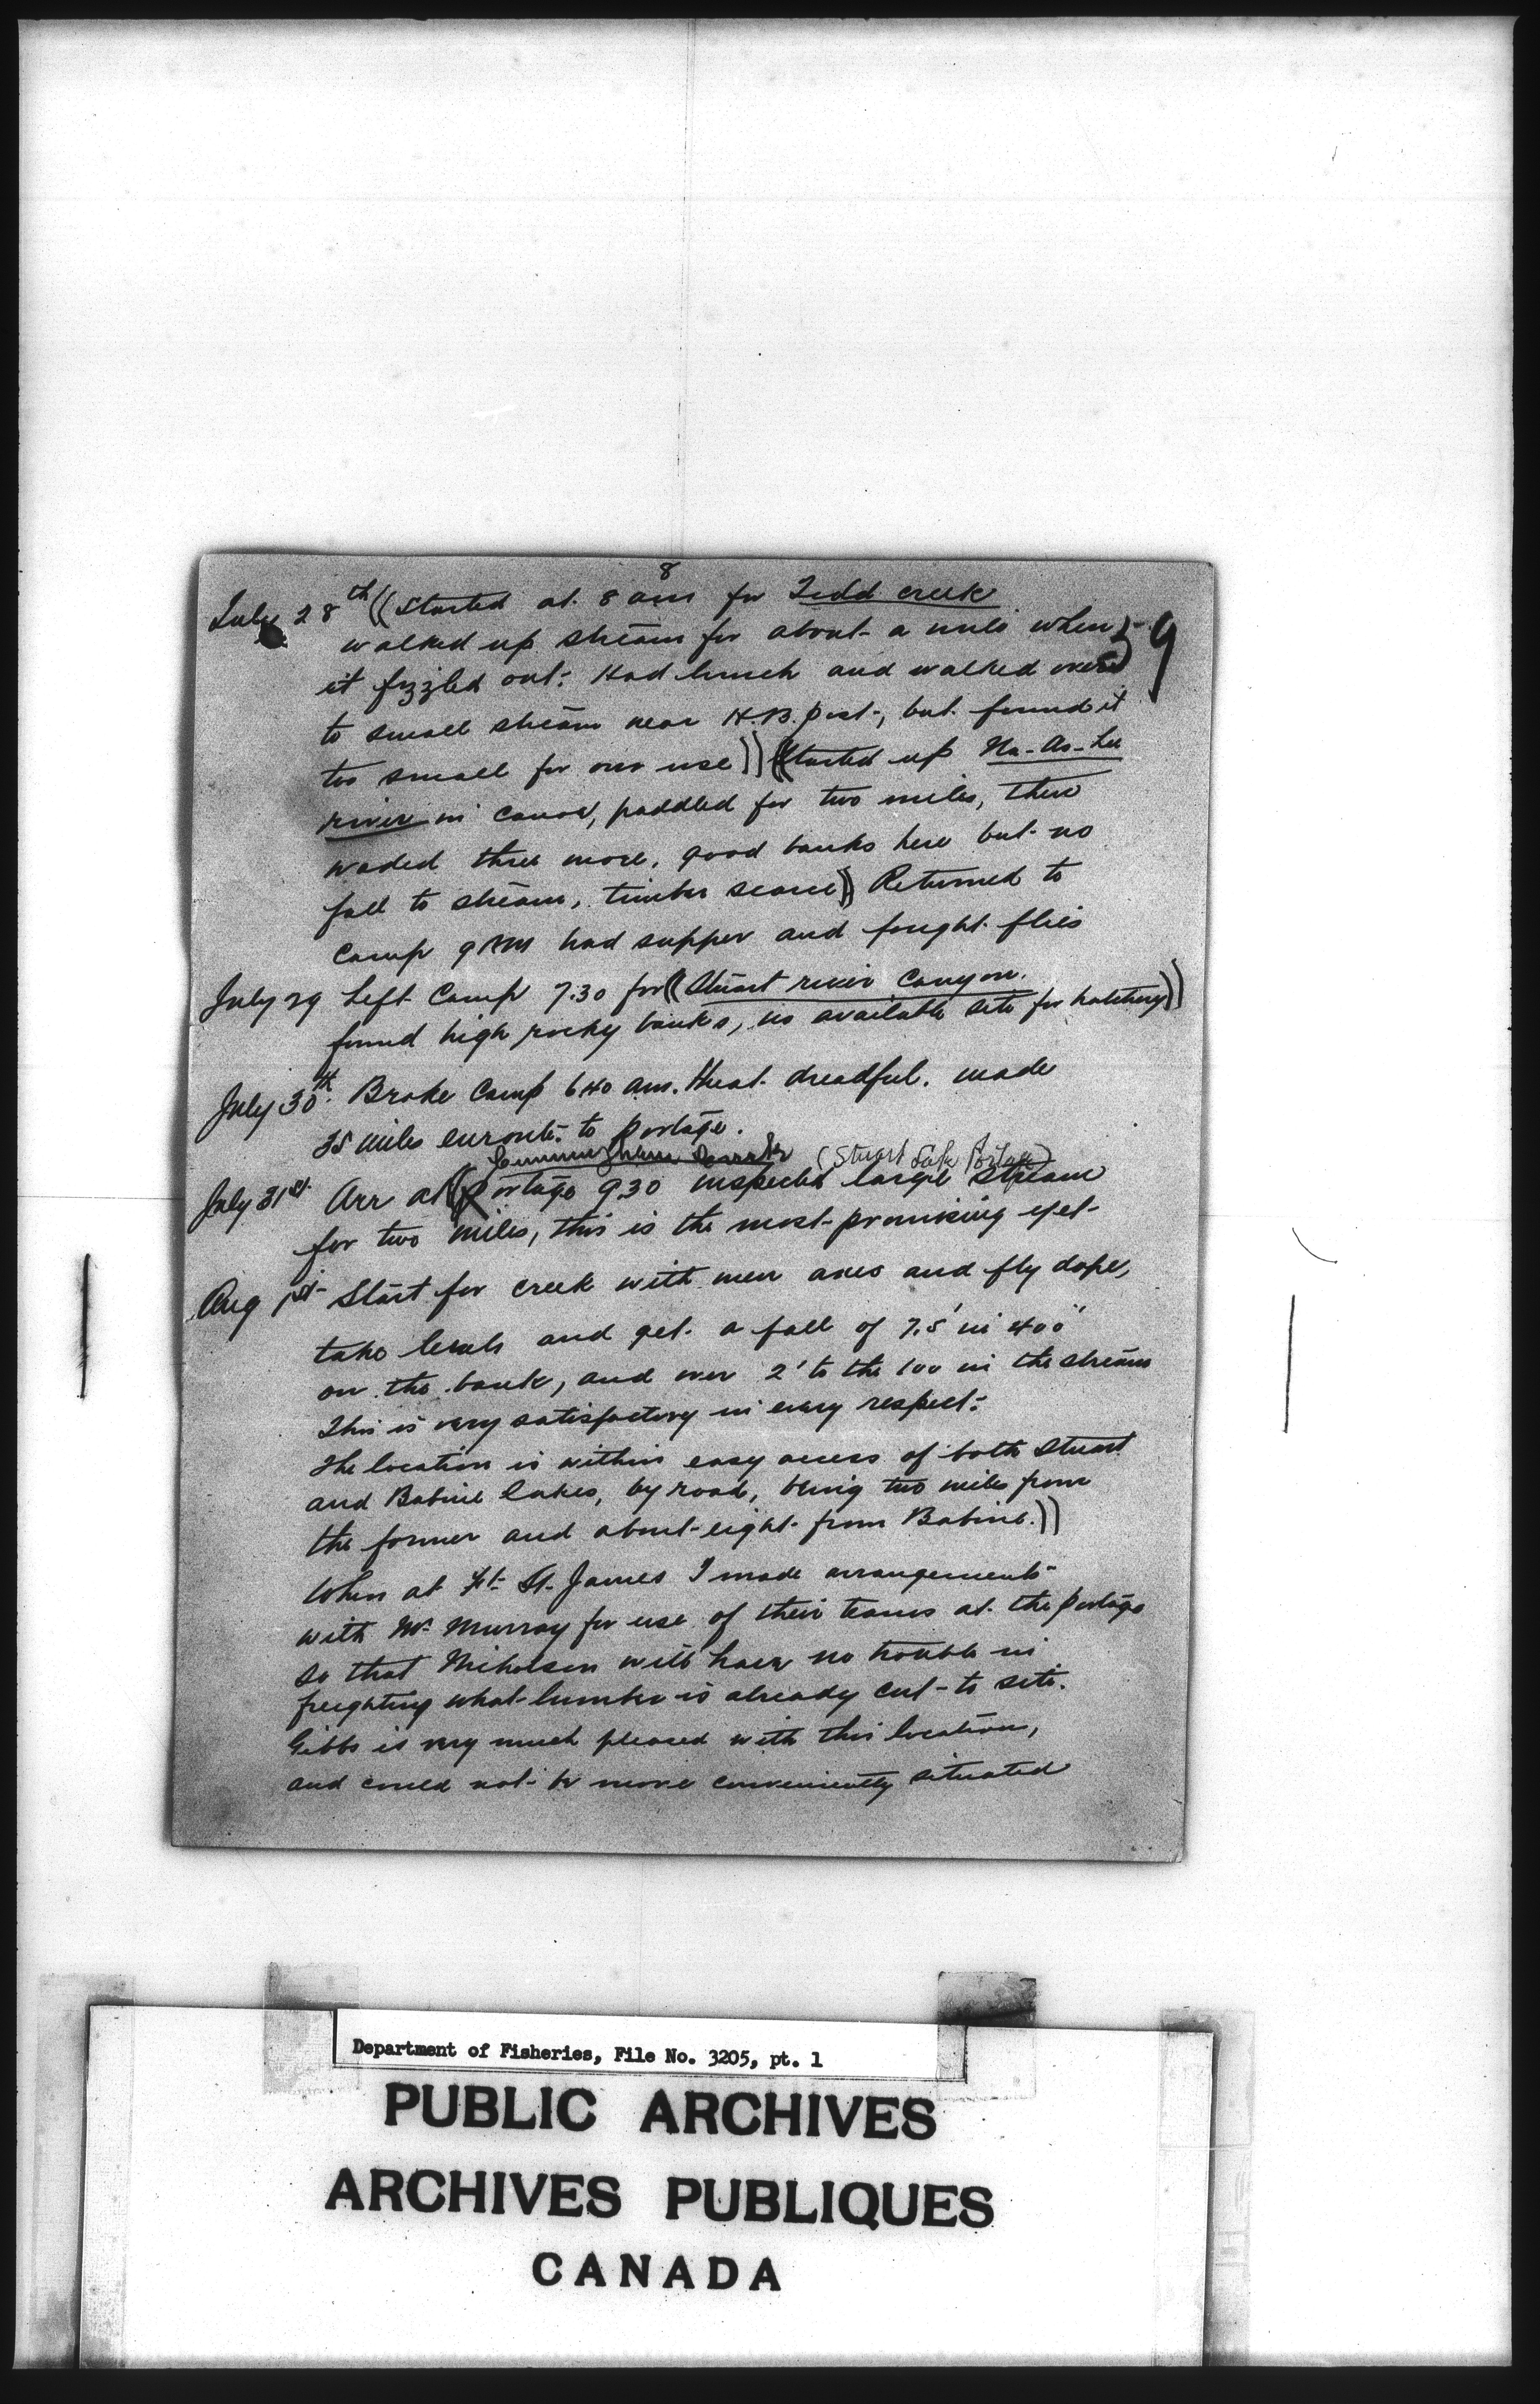 8
July 28th ((Started at 8 am for Tedd creek
walked up stream for about a mile when
59
it fizzled out. Had lunch and walked over
to small stream near H.B. post, but found it
too small for our use)) ((Started up Na-As-Lee
river in canoe, paddled for two miles, then
waded three more, good banks here but no
fall to stream, timber scarce)) Returned to
Camp 9 PM had supper and fought flies
July 29 Left Camp 7.30 for ((Stuart river Canyon.
found high rocky banks, no available site for hatchery))
July 30th. Broke Camp 6 40 am. Heat dreadful. made
25 miles enroute to portage.
Cunningham (Stuart Lake Portage)
July 31st Arr at ((Portage 9.30 inspected large stream
for two miles, this is the most promising yet
Aug 1st Start for creek with men axes and fly dope,
take levels and get a fall of 7.5' in 400"
on the bank, and over 2' to the 100 in the stream
This is very satisfactory in every respect.
The location is within easy access of both Stuart
and Babine lakes, by road, being two miles from
the former and about eight from Babine.))
When at Ft St. James I made arrangements
with Mr Murray for use of their teams at the portage
so that Nicholson will have no trouble in
freighting what lumber is already cut to site.
Gibbs is very much pleased with this location,
and could not be more conveniently situated
Department of Fisheries, File No. 3205, pt. 1
PUBLIC ARCHIVES
ARCHIVES PUBLIQUES
CANADA